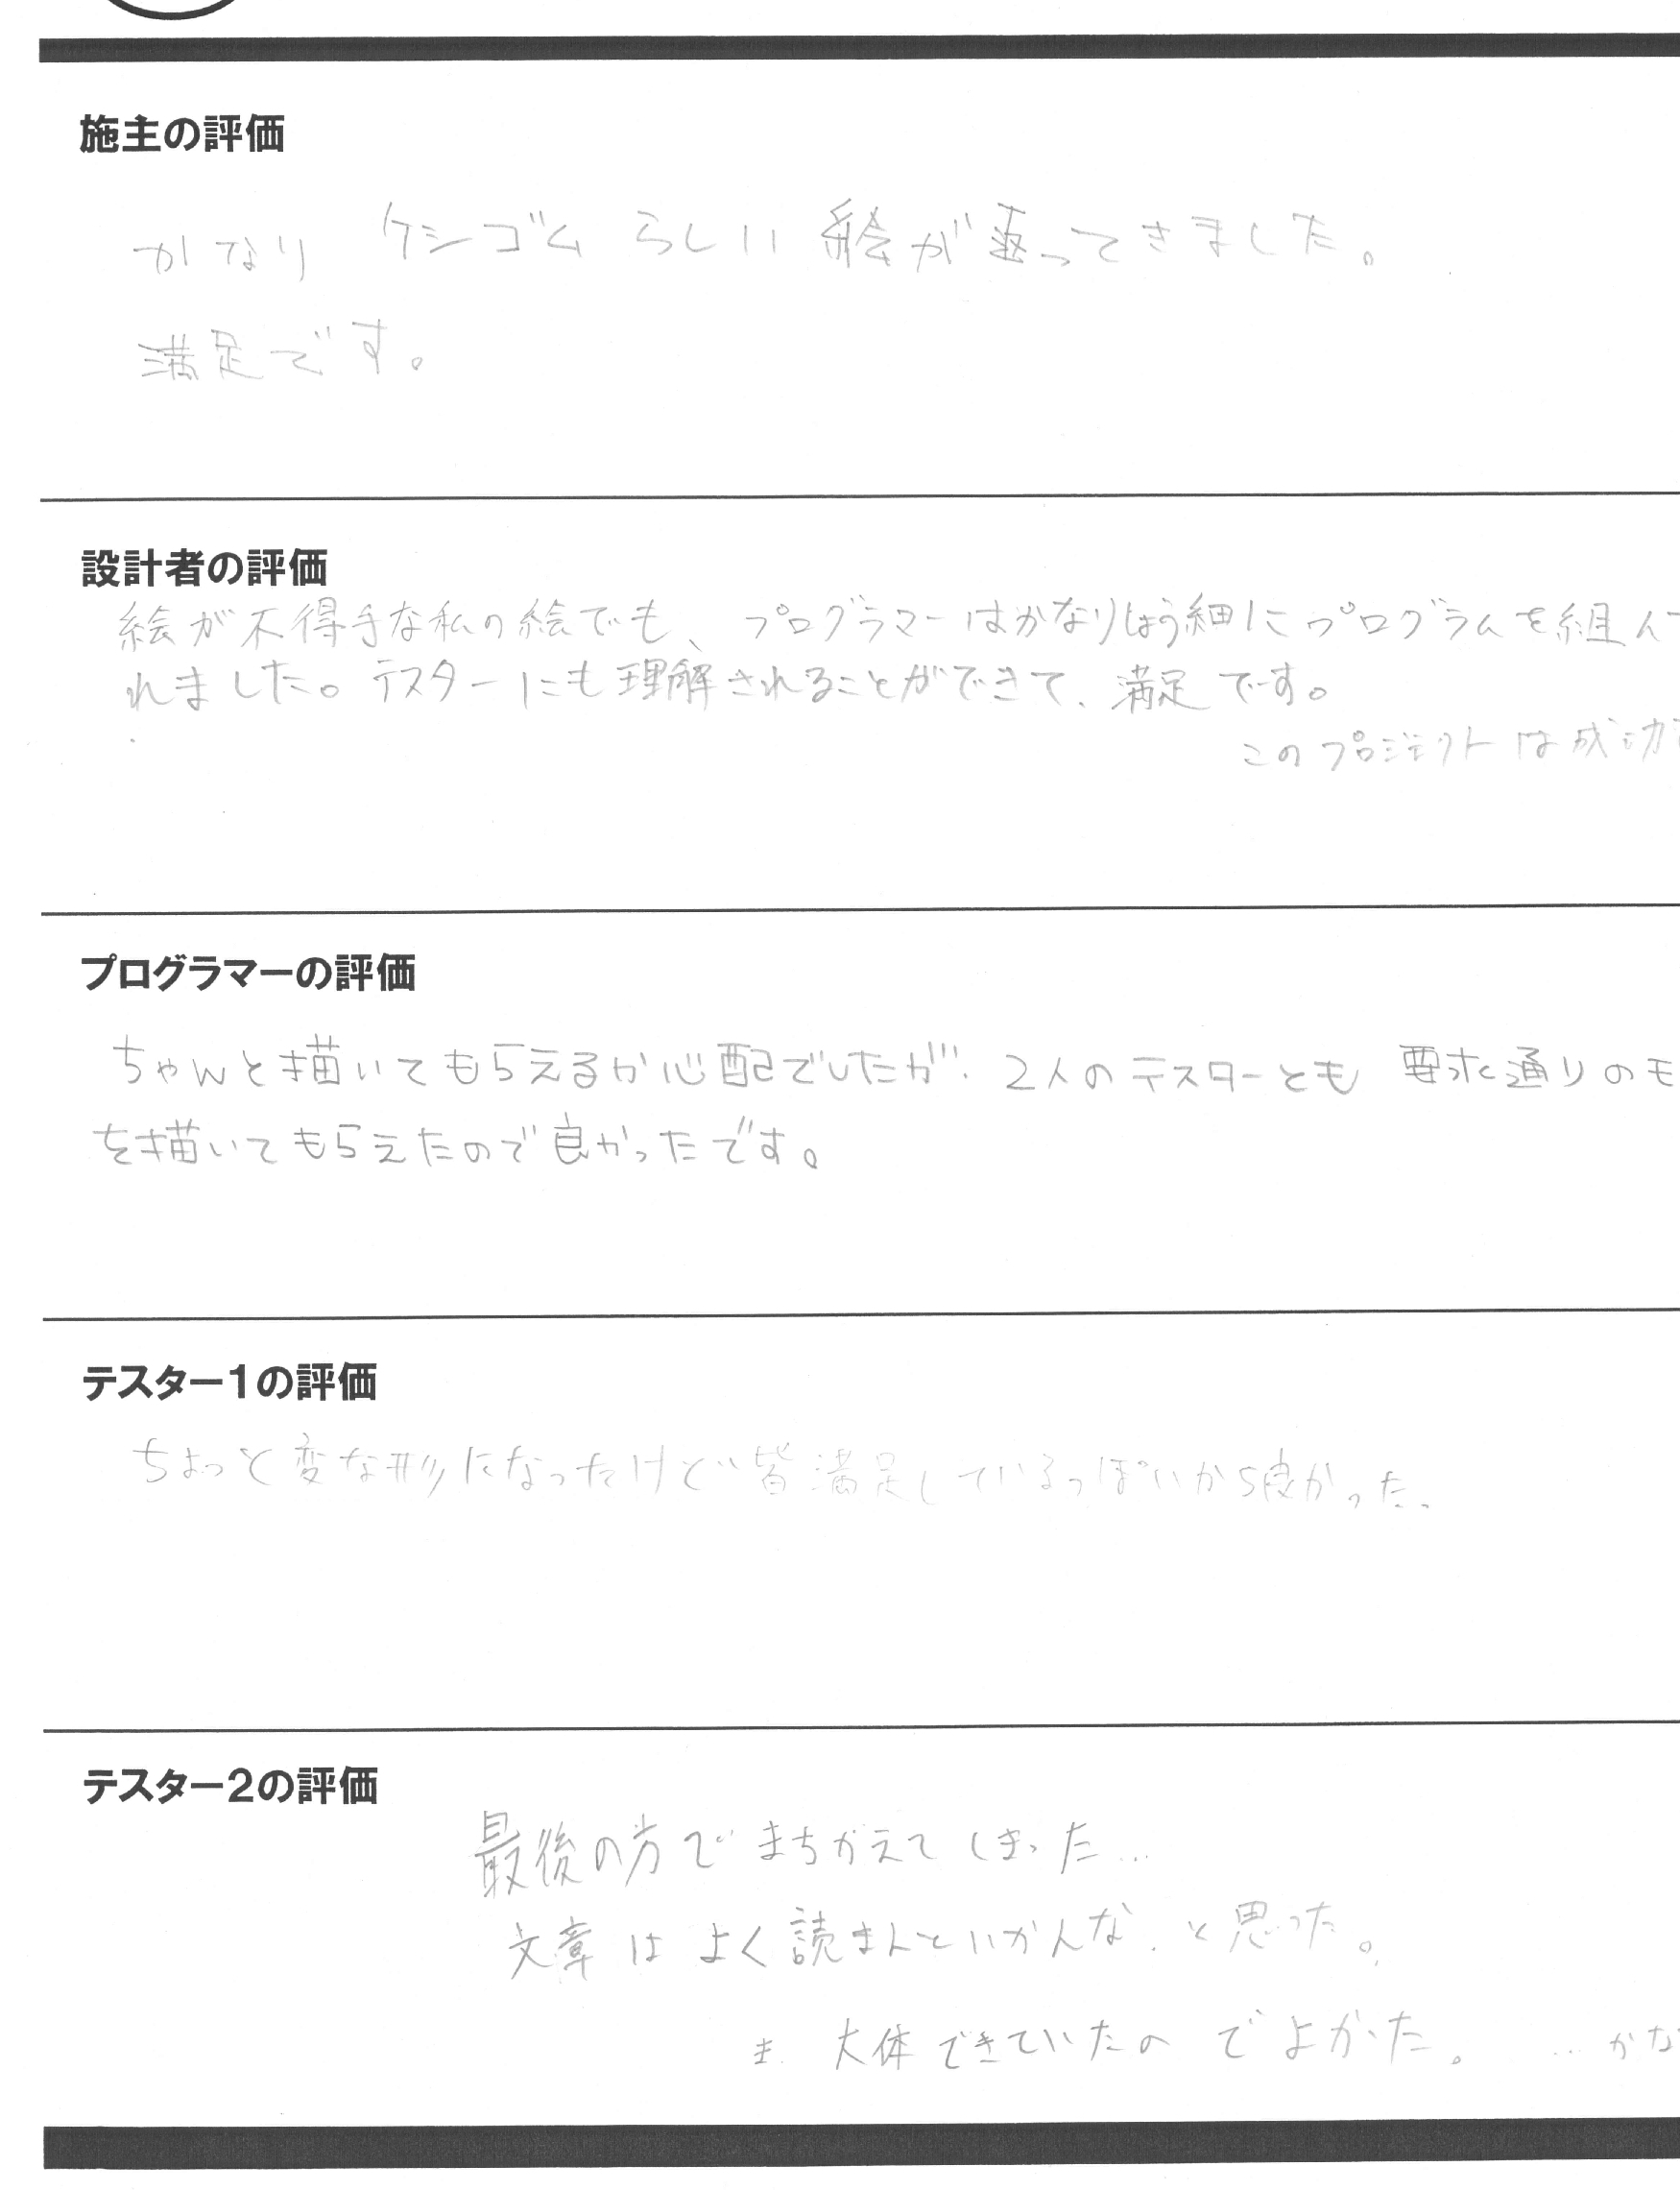 施主の評価
かなり ケシゴム らしい 絵が返ってきました。
満足です。
設計者の評価
絵が不得手な私の絵でも、プログラマーはかなりしょう細にプログラムを組ん
れました。テスターにも理解されることができて、満足です。
このプロジェクトは成功
プログラマーの評価
ちゃんと描いてもらえるか心配でしたが、2人のテスターとも 要求通りのモ
を描いてもらえたので良かったです。
テスター1の評価
ちょっと変な形になったけど皆満足しているっぽいから良かった、
テスター2の評価
最後の方でまちがえてしまった…
文章はよく読まんといかんな、と思った。
ま、大体できていたのでよかった。 …かな